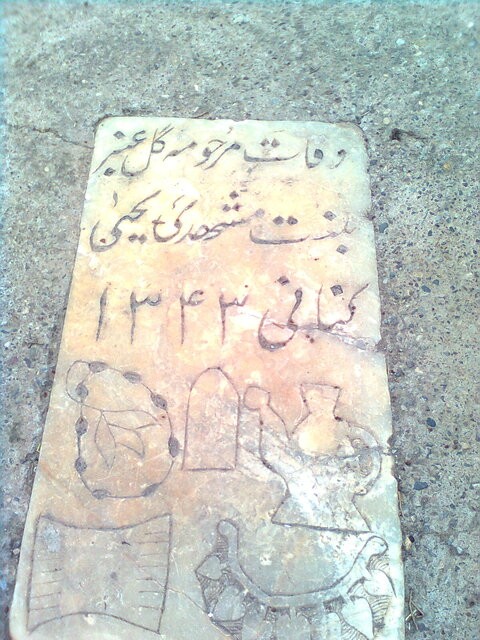 وفات مرحومه گل عنبر
بنت مشهدی یحیی
کتبابی ۱۳۴۳